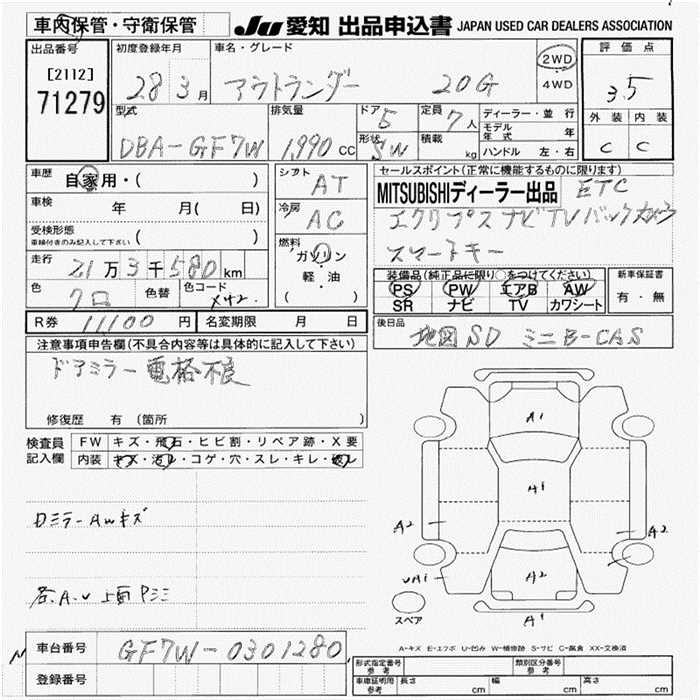 車内保管・守衛保管
JU 愛知 出品申込書 JAPAN USED CAR DEALERS ASSOCIATION
出品番号 初度登録年月 車名・グレード 評価点
[2112] 28 3月 アウトランダー 20G 2WD 3.5
71279 4WD
型式 排気量 ドア 5 定員 7人 ディーラー・並行 外装 内装
DBA-GF7W 1,990cc 形状 SW 積載 kg モデル年式 年 C C
ハンドル 左・右
車歴 自家用・( ) シフト AT セールスポイント(正常に機能するものに限ります)
車検 年 月( 日) 冷房 AC MITSUBISHIディーラー出品 ETC
受検形態 ( ) エクリプスナビTVバックカメラ
車検付きのみ記入して下さい
燃料 ガソリン スマートキー
走行 21万3千580km 軽・油
( )
装備品(純正品に限り○をつけてください) 新車保証書
色 クロ 色替 色コード X42. PS PW エアB AW 有・無
SR ナビ TV カワシート
R券 11100円 名変期限 月 日 後日品
地図SD ミニB-CAS
注意事項申告欄(不具合内容等は具体的に記入して下さい)
ドアミラー電格不良
修復歴 有 (箇所 )
検査員 FW キズ・飛石・ヒビ割・リペア跡・X要
記入欄 内装 キズ・汚レ・コゲ・穴・スレ・キレ・破レ
A1
A1
Dミラー Awキズ
A2 A2
UA1 A2
各A.U 上面Pミミ
スペア A1
A-キズ E-エクボ U-凹み W-補修跡 S-サビ C-腐食 XX-交換済
車台番号 GF7W-0301280
登録番号
形式指定番号 参考 類別区分番号 参考
車庫証明用 参考 長さ cm 幅 cm 高さ cm